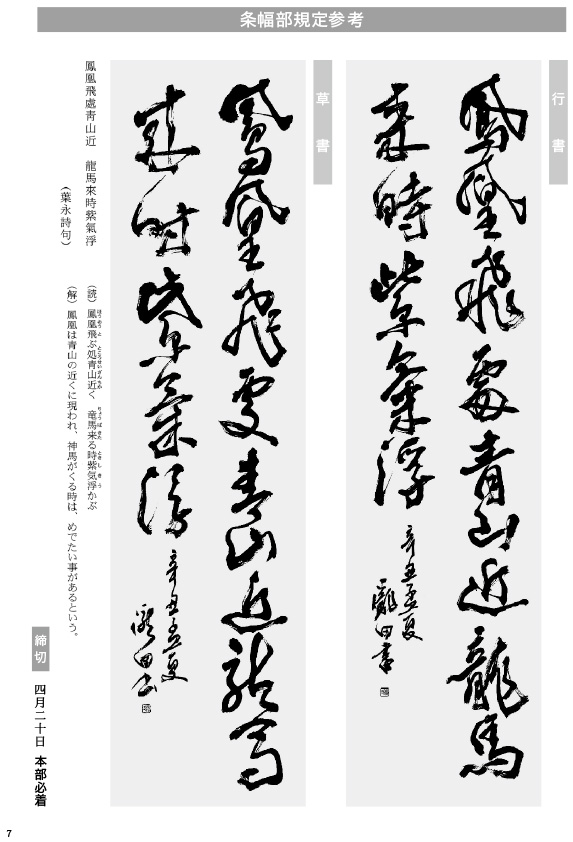 条幅部規定参考
行書
鳳凰飛處青山近龍馬
來時紫氣浮
辛丑孟夏
草書
鳳凰飛處青山近龍馬
來時紫氣浮
辛丑孟夏
鳳凰飛處靑山近　龍馬來時紫氣浮
（葉永詩句）
ほうおうと ところせいざんちか りょうばきた ときしき う
（読）鳳凰飛ぶ処青山近く　竜馬来る時紫気浮かぶ
（解）鳳凰は青山の近くに現われ、神馬がくる時は、めでたい事があるという。
締切
四月二十日 本部必着
7